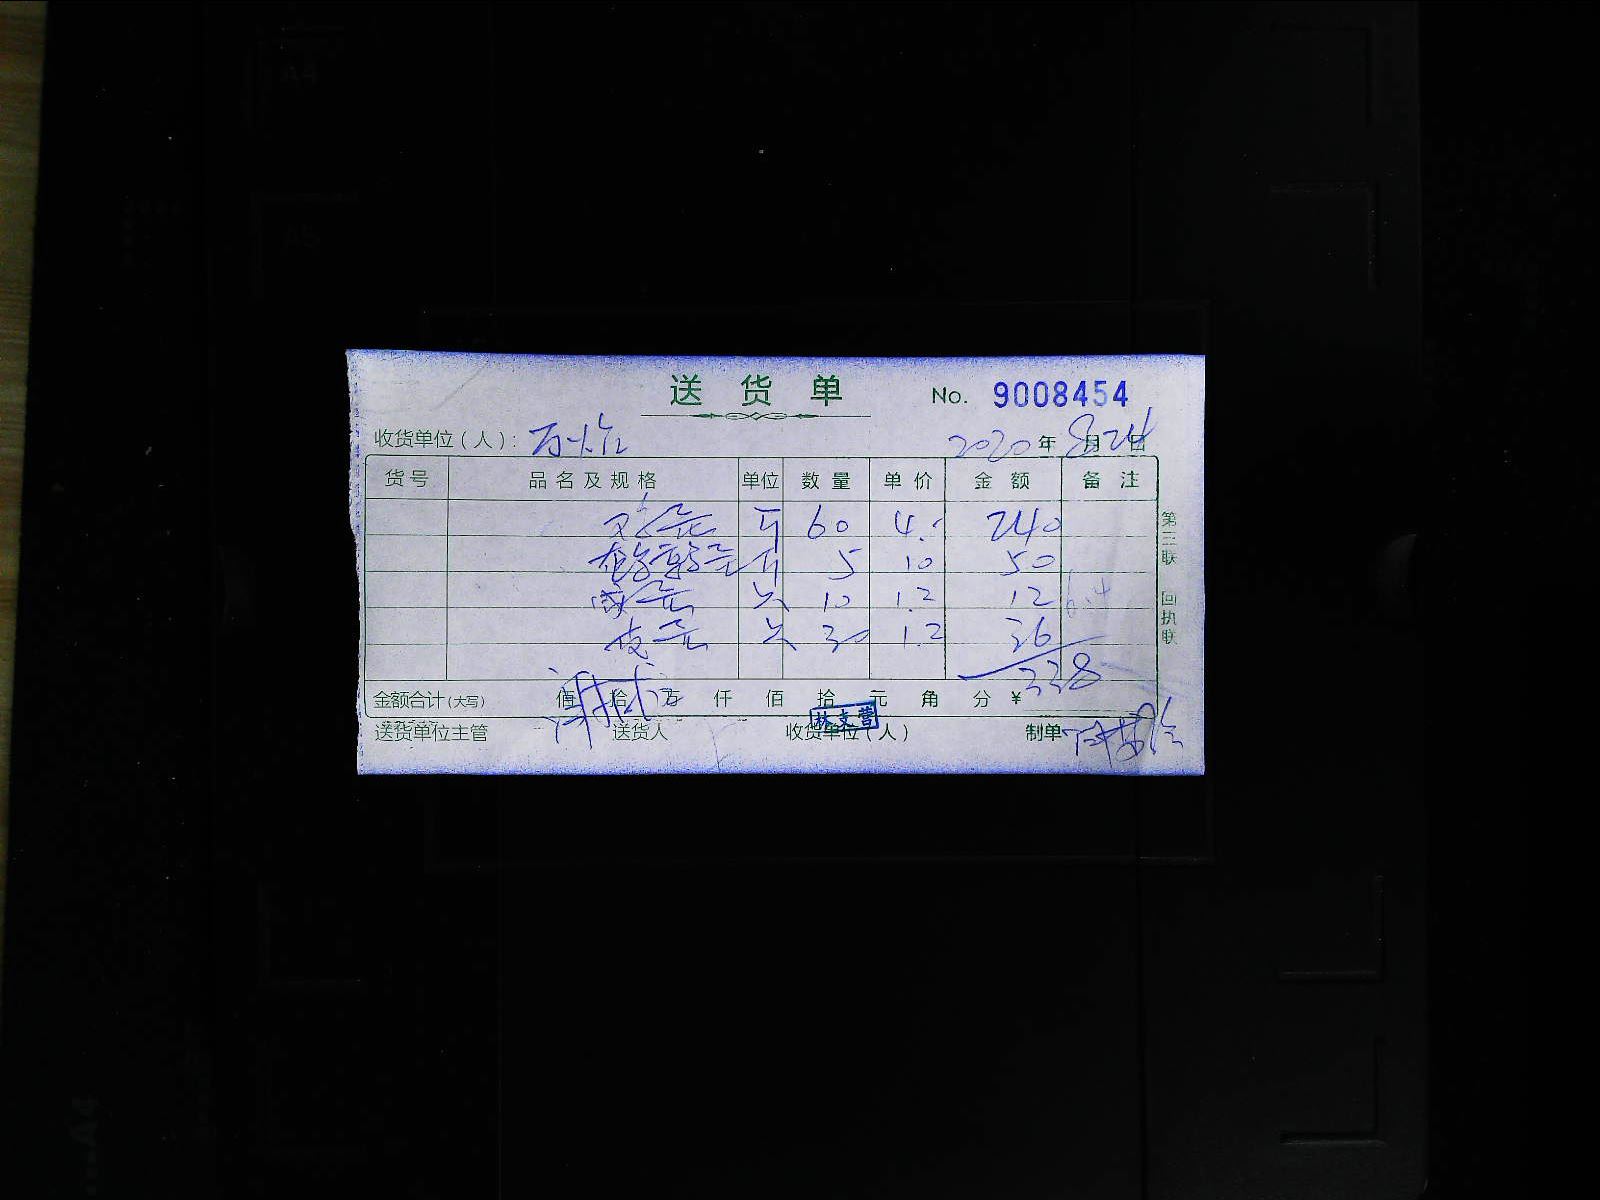 送货单 No. 9008454
收货单位(人): 2020年8月24日
货号 品名及规格 单位 数量 单价 金额 备注
鸡蛋 斤 60 4. 240
斤 5 10 50
咸蛋 只 10 1.2 12 6.4
皮蛋 只 30 1.2 36
338
金额合计(大写) 佰 拾 万 仟 佰 拾 元 角 分 ¥
送货单位主管 送货人 收货单位(人) 制单
林支营
第三联 回执联
A4
A5
A4